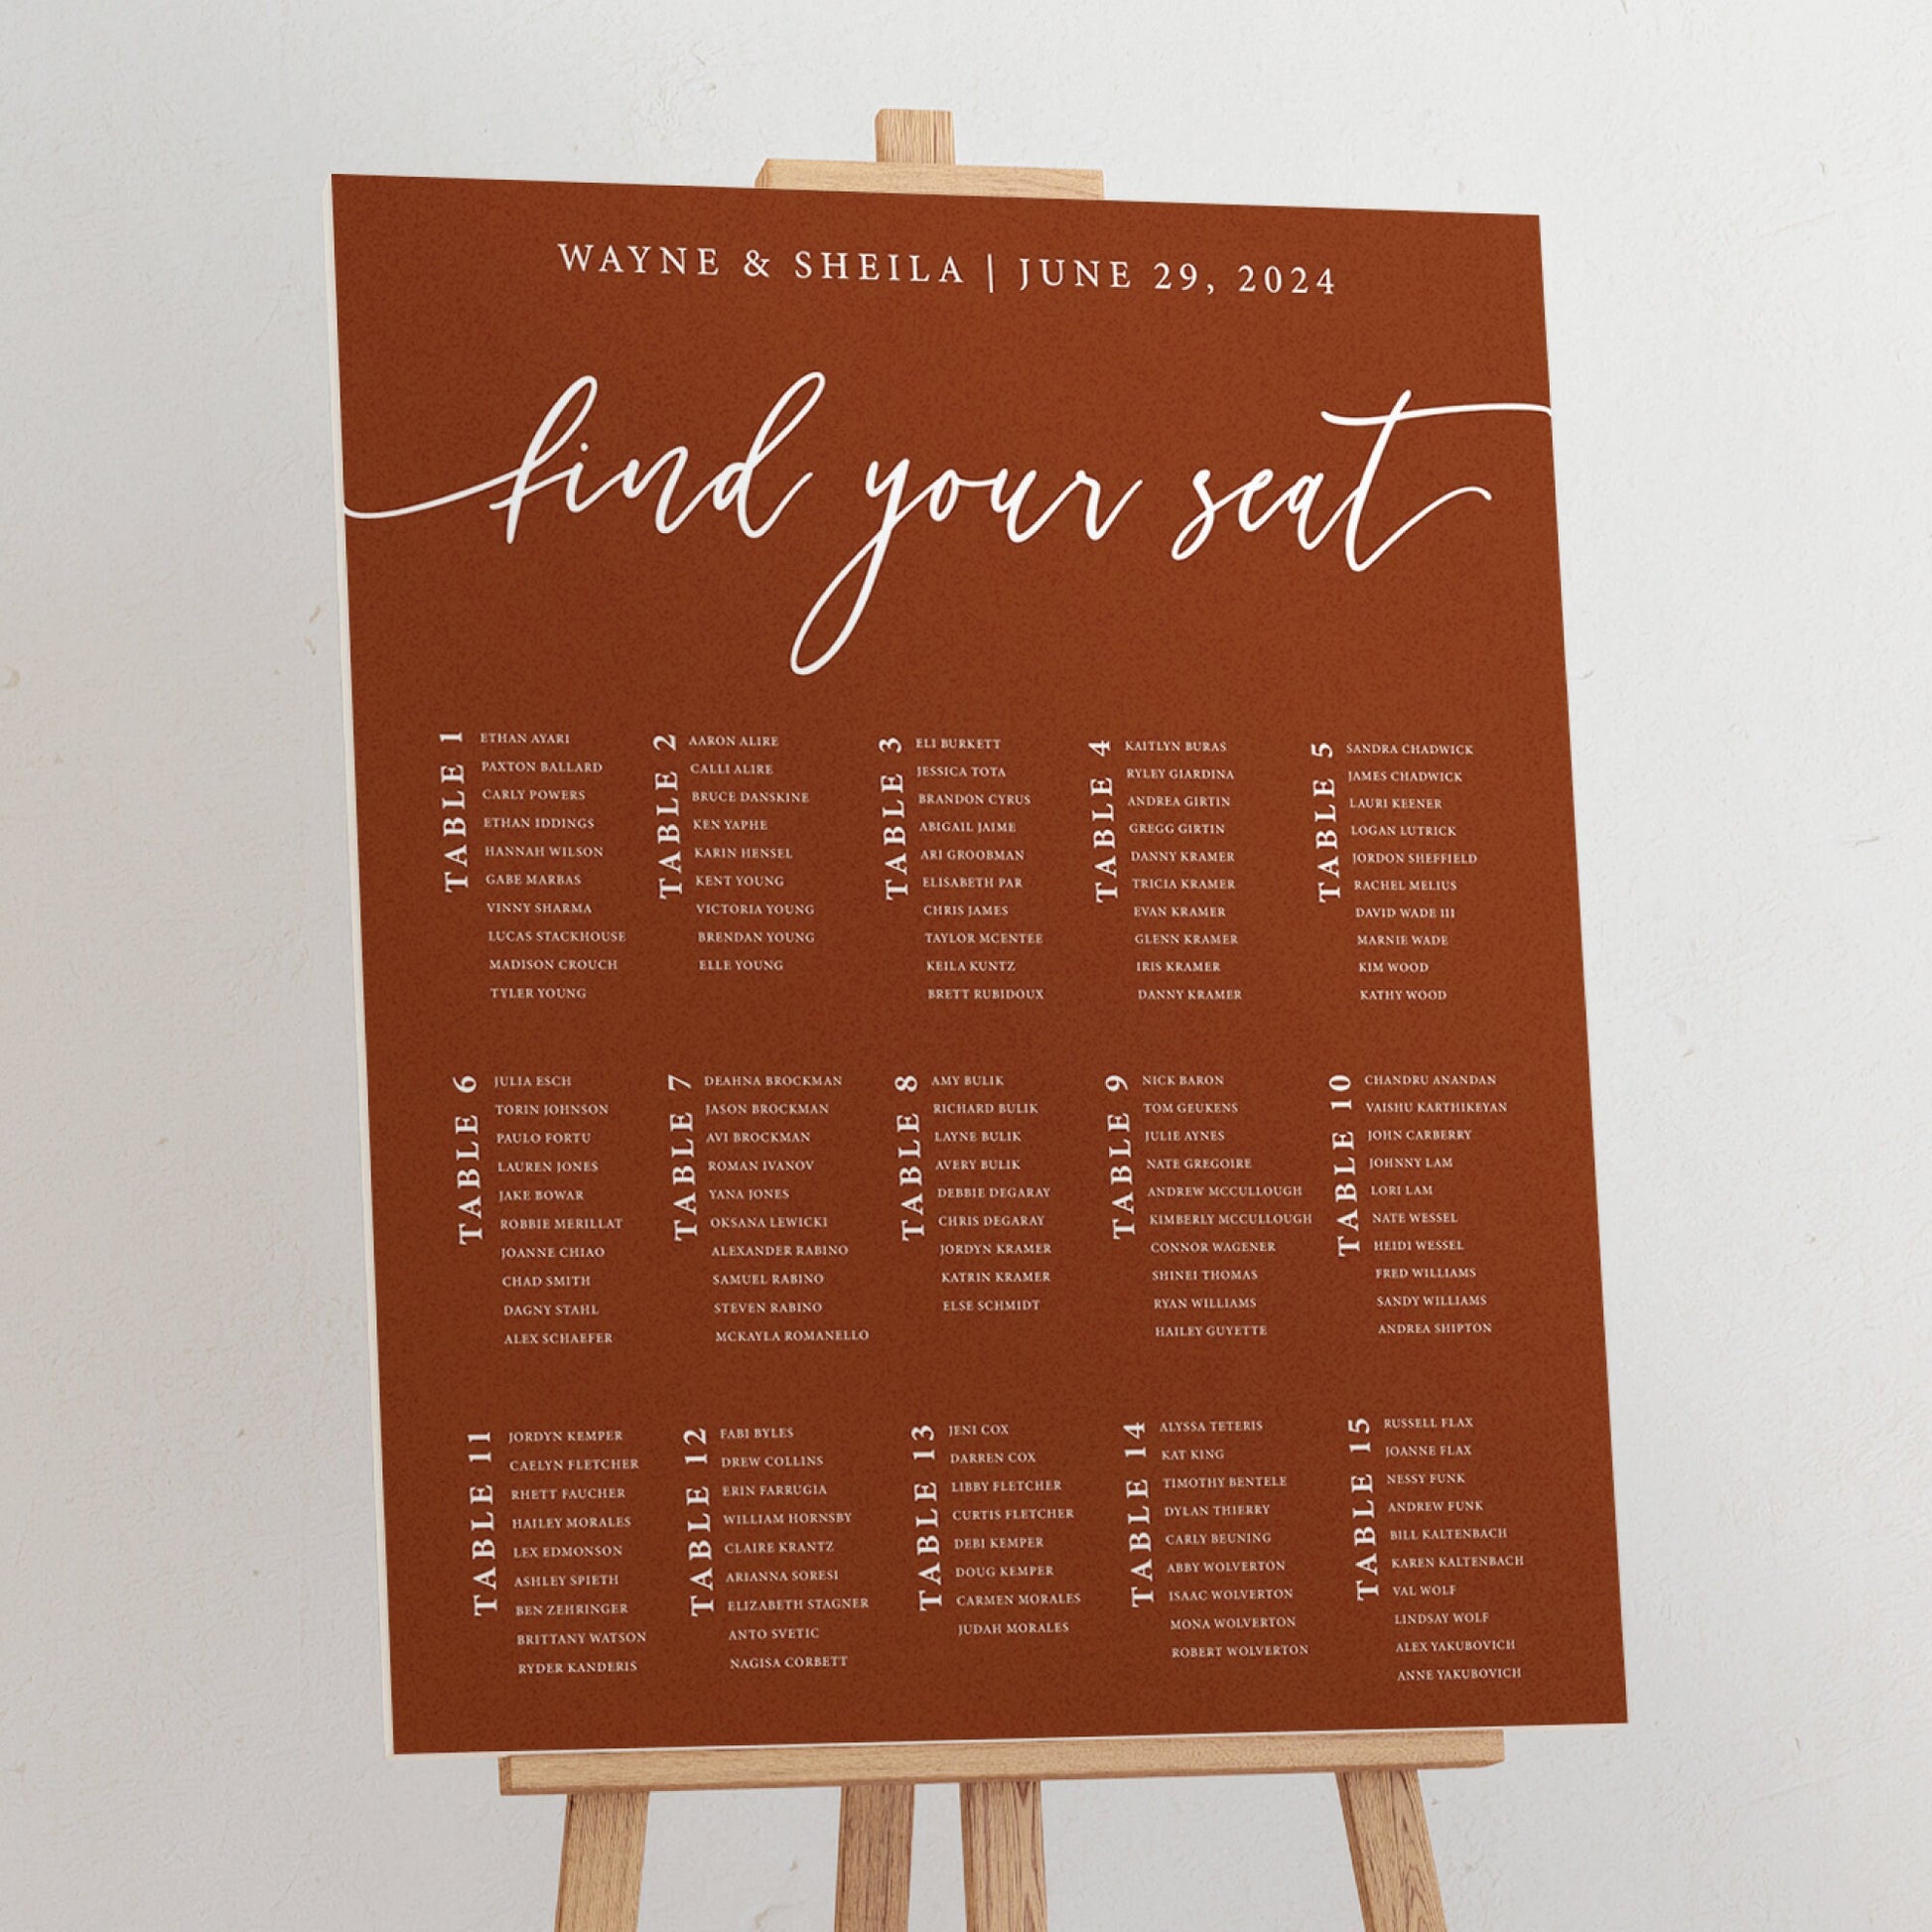 WAYNE & SHEILA | JUNE 29, 2024
find your seat
TABLE 1
ETHAN AYARI
PAXTON BALLARD
CARLY POWERS
ETHAN IDDINGS
HANNAH WILSON
GABE MARBAS
VINNY SHARMA
LUCAS STACKHOUSE
MADISON CROUCH
TYLER YOUNG
TABLE 2
AARON ALIRE
CALLI ALIRE
BRUCE DANSKINE
KEN YAPHE
KARIN HENSEL
KENT YOUNG
VICTORIA YOUNG
BRENDAN YOUNG
ELLE YOUNG
TABLE 3
ELI BURKETT
JESSICA TOTA
BRANDON CYRUS
ABIGAIL JAIME
ARI GROOBMAN
ELISABETH PAR
CHRIS JAMES
TAYLOR MCENTEE
KEILA KUNTZ
BRETT RUBIDOUX
TABLE 4
KAITLYN BURAS
RYLEY GIARDINA
ANDREA GIRTIN
GREGG GIRTIN
DANNY KRAMER
TRICIA KRAMER
EVAN KRAMER
GLENN KRAMER
IRIS KRAMER
DANNY KRAMER
TABLE 5
SANDRA CHADWICK
JAMES CHADWICK
LAURI KEENER
LOGAN LUTRICK
JORDON SHEFFIELD
RACHEL MELIUS
DAVID WADE III
MARNIE WADE
KIM WOOD
KATHY WOOD
TABLE 6
JULIA ESCH
TORIN JOHNSON
PAULO FORTU
LAUREN JONES
JAKE BOWAR
ROBBIE MERILLAT
JOANNE CHIAO
CHAD SMITH
DAGNY STAHL
ALEX SCHAEFER
TABLE 7
DEAHNA BROCKMAN
JASON BROCKMAN
AVI BROCKMAN
ROMAN IVANOV
YANA JONES
OKSANA LEWICKI
ALEXANDER RABINO
SAMUEL RABINO
STEVEN RABINO
MCKAYLA ROMANELLO
TABLE 8
AMY BULIK
RICHARD BULIK
LAYNE BULIK
AVERY BULIK
DEBBIE DEGARAY
CHRIS DEGARAY
JORDYN KRAMER
KATRIN KRAMER
ELSE SCHMIDT
TABLE 9
NICK BARON
TOM GEUKENS
JULIE AYNES
NATE GREGOIRE
ANDREW MCCULLOUGH
KIMBERLY MCCULLOUGH
CONNOR WAGENER
SHINEI THOMAS
RYAN WILLIAMS
HAILEY GUYETTE
TABLE 10
CHANDRU ANANDAN
VAISHU KARTHIKEYAN
JOHN CARBERRY
JOHNNY LAM
LORI LAM
NATE WESSEL
HEIDI WESSEL
FRED WILLIAMS
SANDY WILLIAMS
ANDREA SHIPTON
TABLE 11
JORDYN KEMPER
CAELYN FLETCHER
RHETT FAUCHER
HAILEY MORALES
LEX EDMONSON
ASHLEY SPIETH
BEN ZEHRINGER
BRITTANY WATSON
RYDER KANDERIS
TABLE 12
FABI BYLES
DREW COLLINS
ERIN FARRUGIA
WILLIAM HORNSBY
CLAIRE KRANTZ
ARIANNA SORESI
ELIZABETH STAGNER
ANTO SVETIC
NAGISA CORBETT
TABLE 13
JENI COX
DARREN COX
LIBBY FLETCHER
CURTIS FLETCHER
DEBI KEMPER
DOUG KEMPER
CARMEN MORALES
JUDAH MORALES
TABLE 14
ALYSSA TETERIS
KAT KING
TIMOTHY BENTELE
DYLAN THIERRY
CARLY BEUNING
ABBY WOLVERTON
ISAAC WOLVERTON
MONA WOLVERTON
ROBERT WOLVERTON
TABLE 15
RUSSELL FLAX
JOANNE FLAX
NESSY FUNK
ANDREW FUNK
BILL KALTENBACH
KAREN KALTENBACH
VAL WOLF
LINDSAY WOLF
ALEX YAKUBOVICH
ANNE YAKUBOVICH